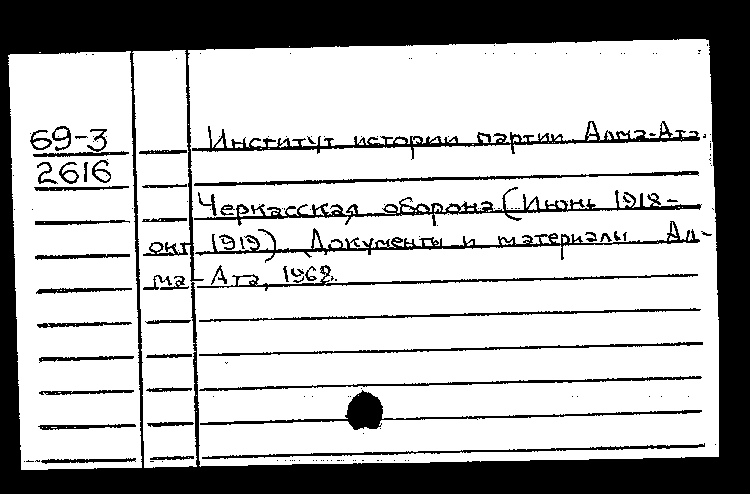 69-3 Институт истории партии Алма-Ата.
2616
Черкасская оборона (Июнь 1918-
окт 1919) Документы и материалы. Ал-
ма-Ата, 1968.